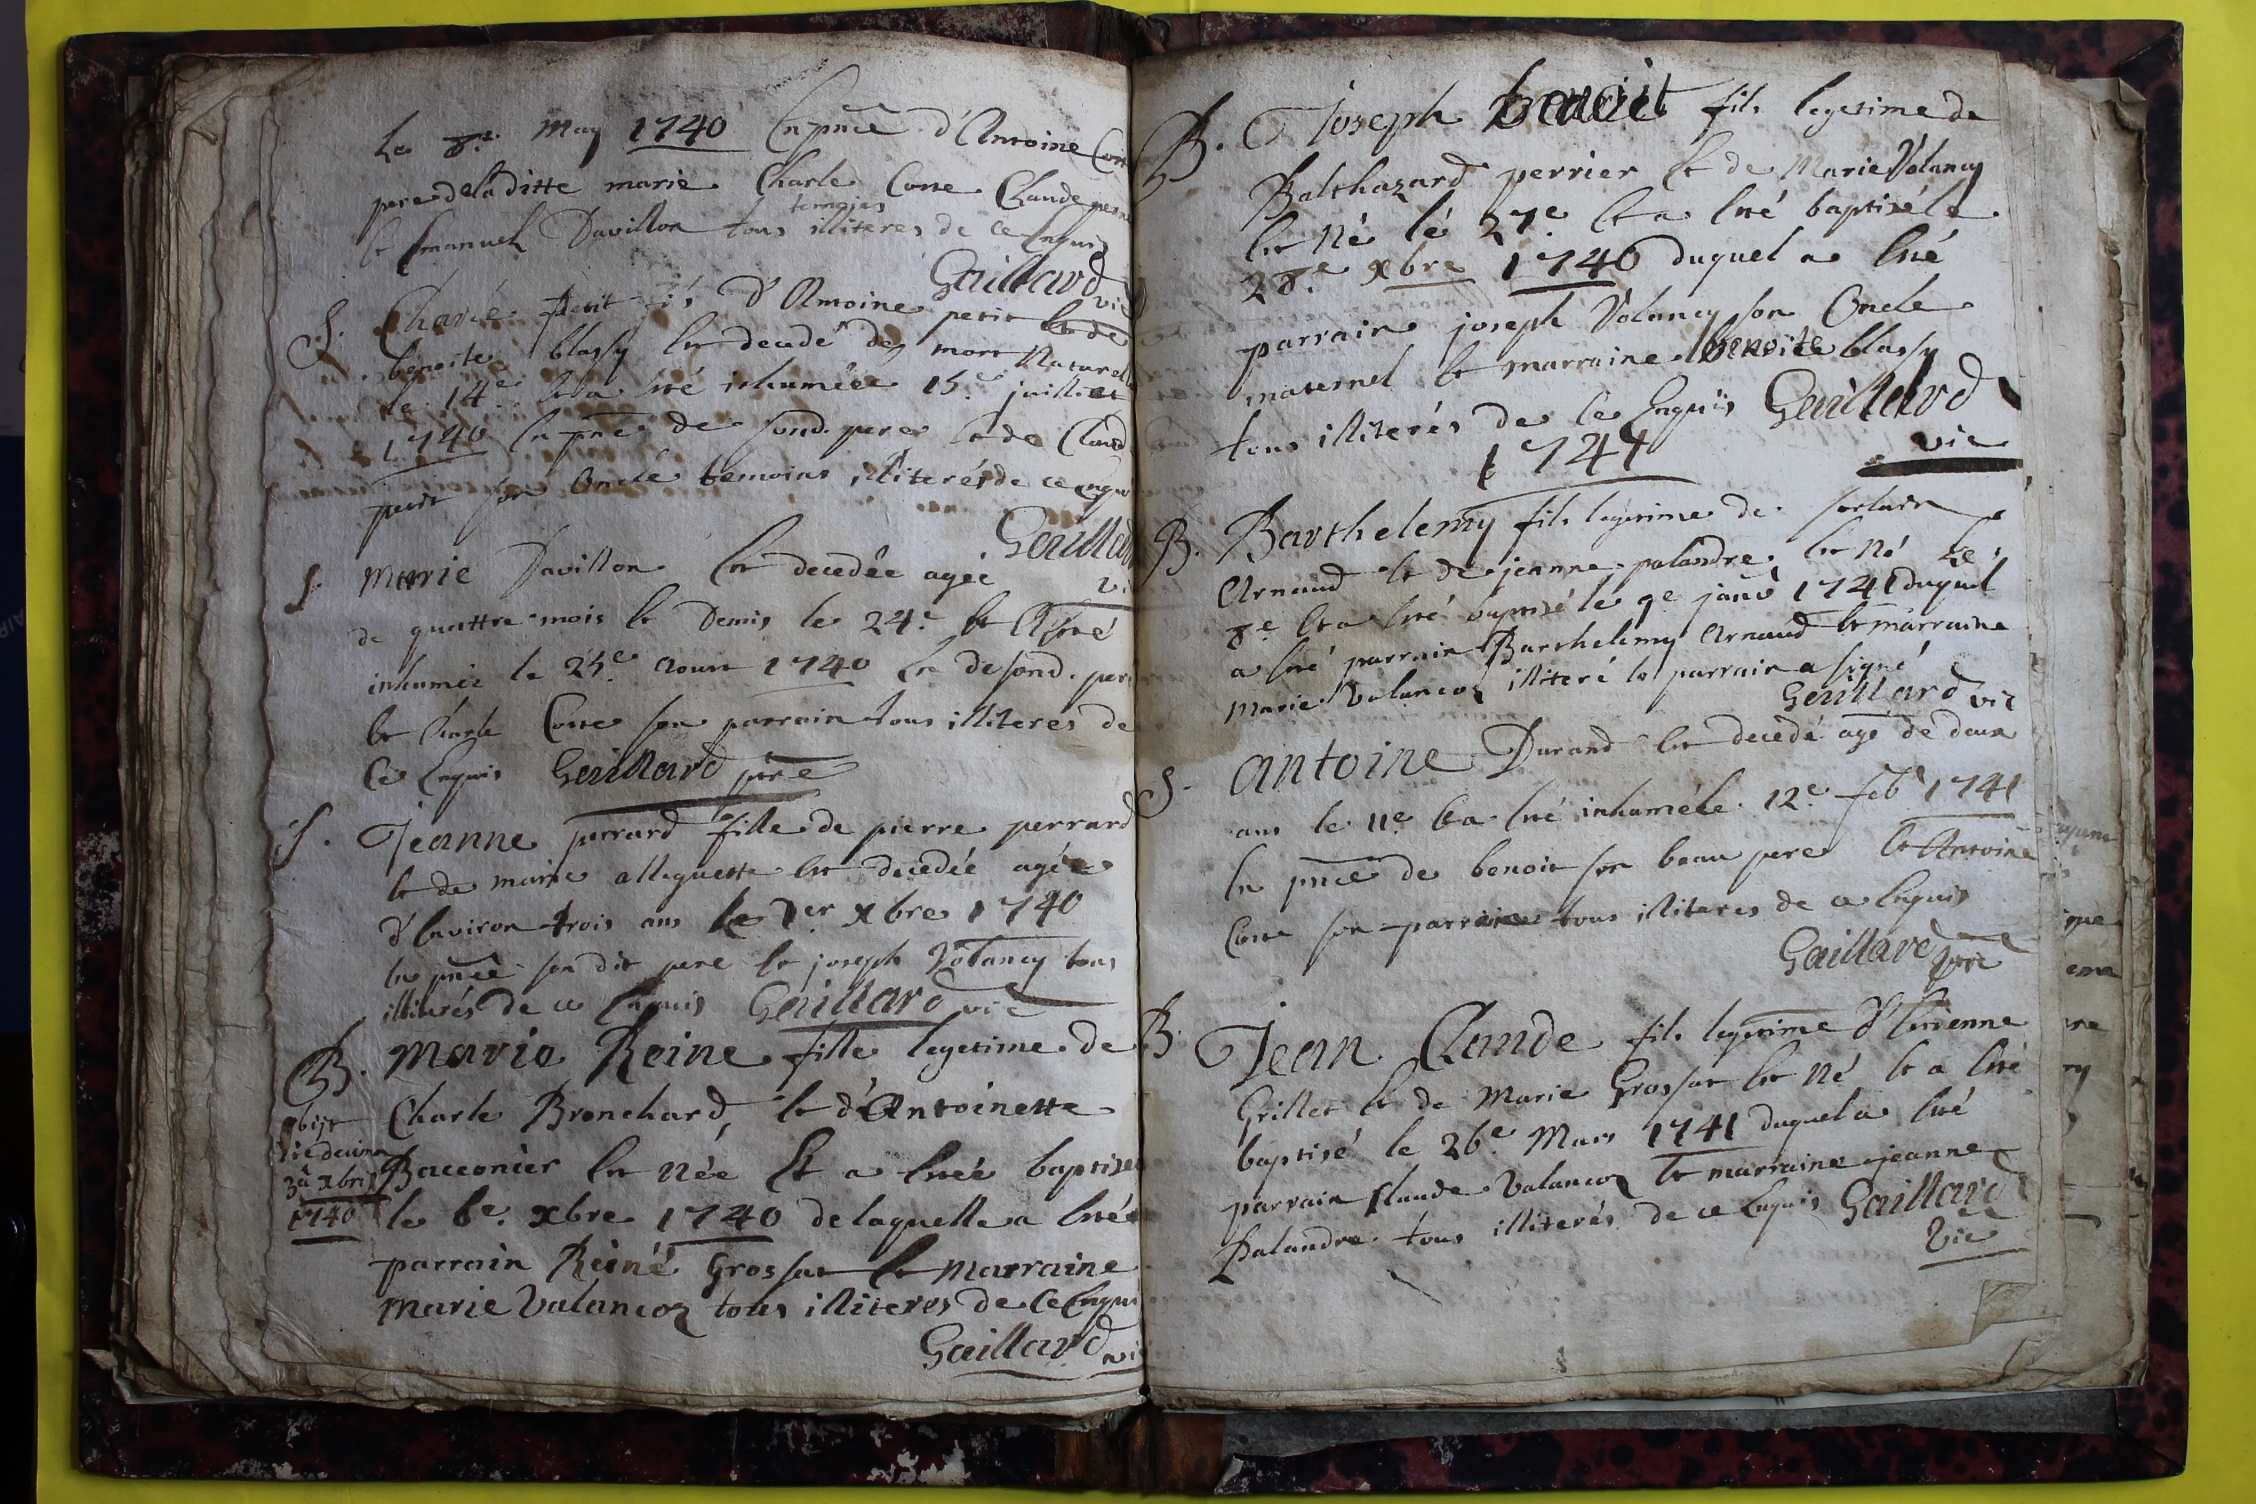 Le 8e. May 1740 En pnce d'Antoine Cost
pere de la ditte marie Charle Coste Claude
temojns
et Emanuel Davillon tous illiteres de ce Enquis
Gaillard vic
S. Charle Petit fis d'Antoine petit et de
benoite blassy est decedé de mort Naturelle
le 14e. et a eté inhumée 15e juilliet
1740 En pnce de sond. pere et de Claud
petit son Oncle temoins illiterés de ce enquis
Gaillard
vi
S. Marie Davillon Est decedée agée
de quattre mois et Demis le 24e. et A eté
inhumée le 25e. Aoust 1740 En de sond. pere
et Charle Coste son parrain tous illiteres de
Ce Enquis Gaillard ptre
S. Jeanne perrard fille de pierre perrard
et de marie alleguette est decedée agée
d'Environ trois ans le 1er xbre 1740
En pnce son dit pere et joseph Volancy tous
illiterés de ce Enquis Gaillard vic
B. Marie Reine fille legetime de
Charle Bronchard, et d'Antoinette
obijt
die decima
3a xbris
1740
Bacconier Est Née Et a Etée baptizée
le 6e. xbre 1740 de laquelle a Eté
parrain Reiné Grossat Et Marraine
Marie Valancoz tous illiteres de Ce Enquis
Gaillard vi
B. Joseph benoit fils legetime de
Balthazard perrier Et de Marie Volancy
Est Né le 27e Et a Eté baptizé le
28e xbre 1740 duquel a Eté
parrain joseph Volancy son Oncle
maternel Et marraine benoite blassy
tous illiterés de Ce Enquis Gaillard
vic
1741
B. Barthelemy fils legetime de
Arnaud Et de jeanne palandre, Est Né Le
8e Et a Eté baptizé le 9e janv 1741 duquel
a Eté parrain Barthelemy Arnaud Et marraine
Marie Valancoz illiteré le parrain a signé
Gaillard vic
S. Antoine Durand Est decedé agé de deux
ans le 11e. Et a Eté inhumé le 12e. feb 1741
En pnce de benoit son beau pere Et Antoine
Coste son parrain tous illiteres de ce Enquis
Gaillard ptre
B. Jean Claude fils legetime d'Etienne
Grillet Et de Marie Grossat Est Né Et a Eté
baptisé le 26e. Mars 1741 duquel a Eté
parrain Claude Valancoz Et marraine jeanne
Palandre tous illiterés de ce Enquis Gaillard
Vic